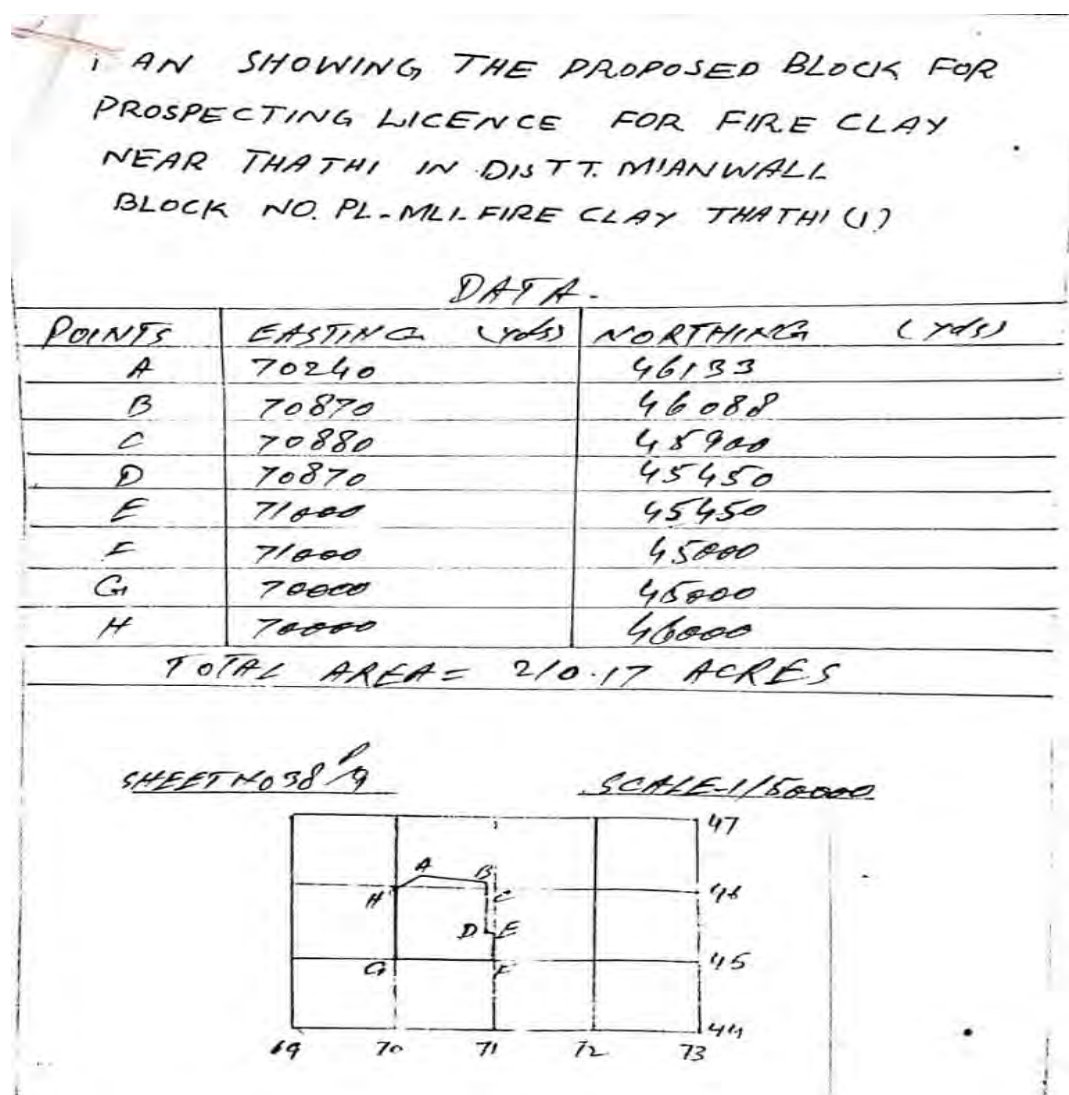 i AN SHOWING THE PROPOSED BLOCK FOR
PROSPECTING LICENCE FOR FIRE CLAY
NEAR THATHI IN DISTT. MIANWALL
BLOCK NO. PL-MLI. FIRE CLAY THATHI (1)
DATA-
POINTS EASTING (yds) NORTHING (yds)
A 70240 46133
B 70870 46088
C 70880 45900
D 70870 45450
E 71000 45450
F 71000 45000
G 70000 45000
H 70000 46000
TOTAL AREA = 210.17 ACRES
SHEET NO 38 P/9 SCALE-1/50000
47
A B
H C 46
D E
G F 45
44
69 70 71 72 73